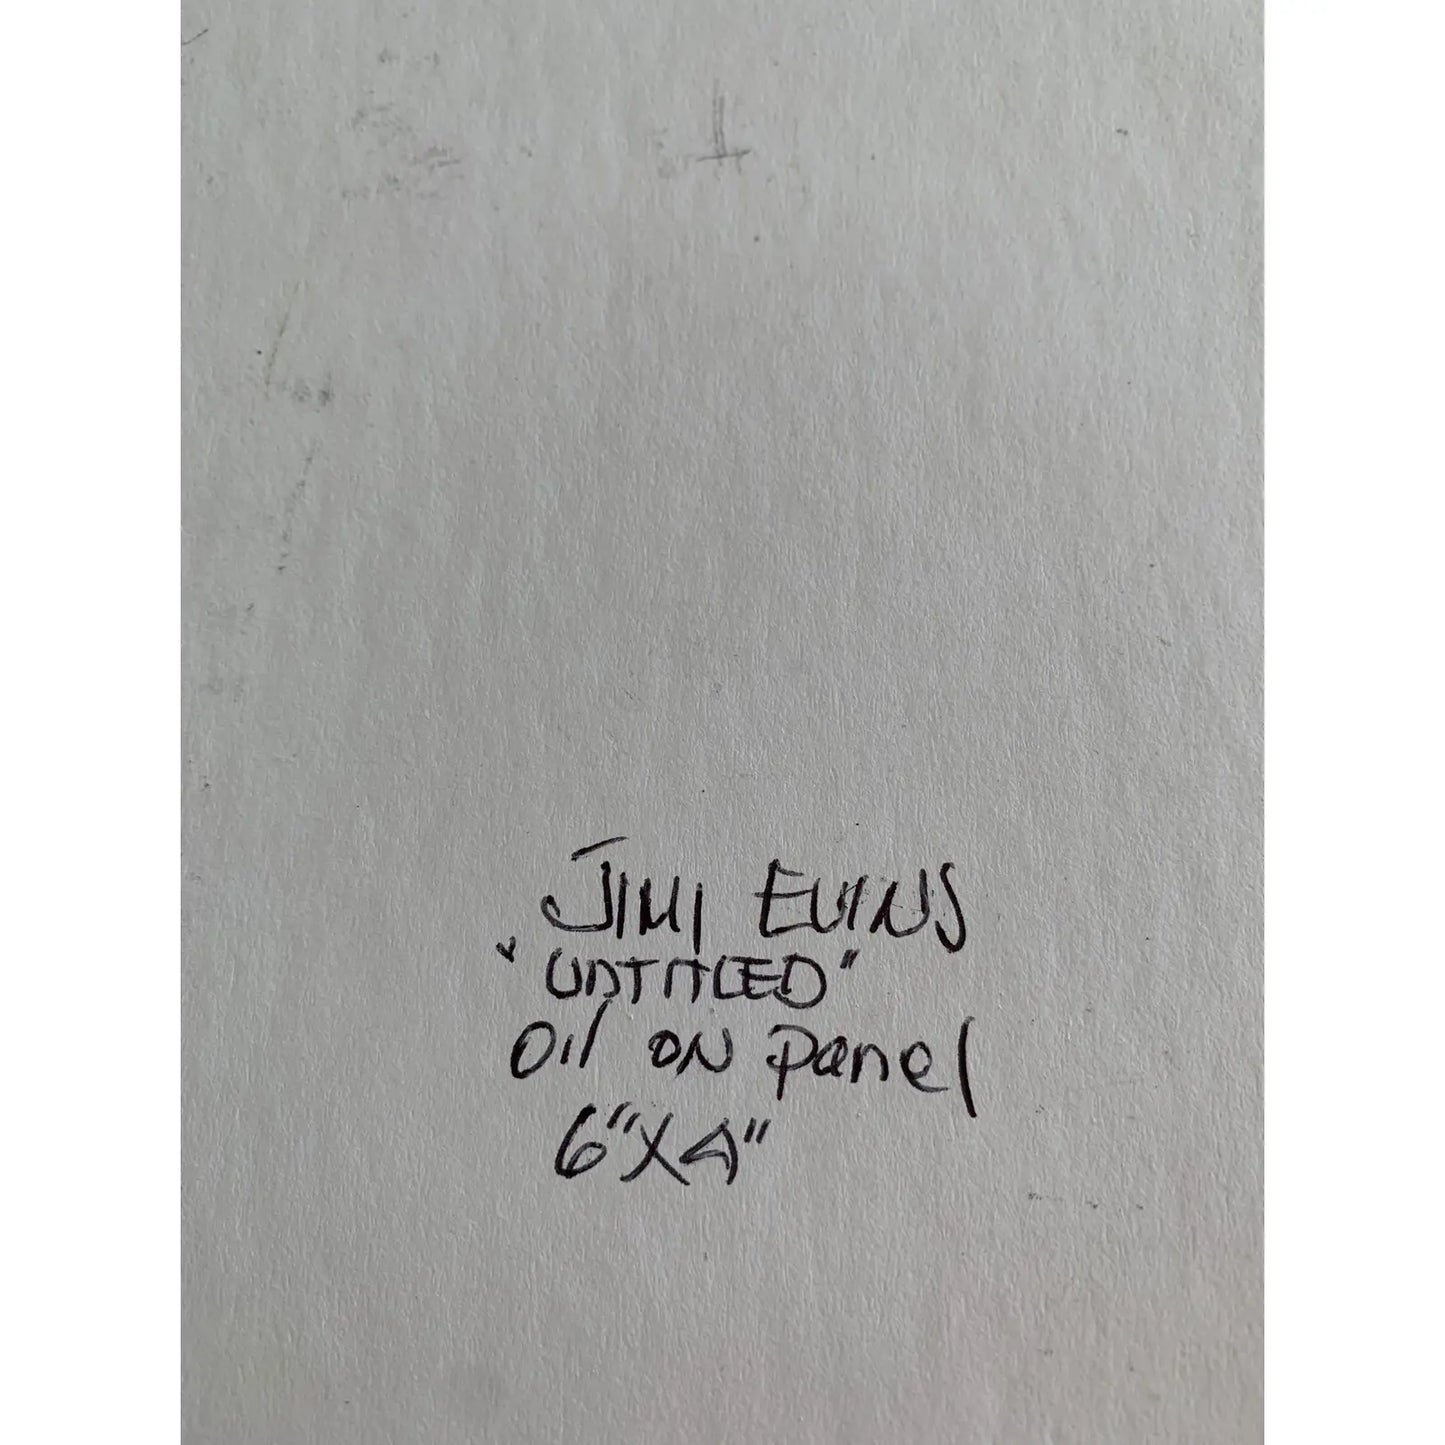 JIMI EVINS
"UNTITLED"
Oil ON panel
6"X4"